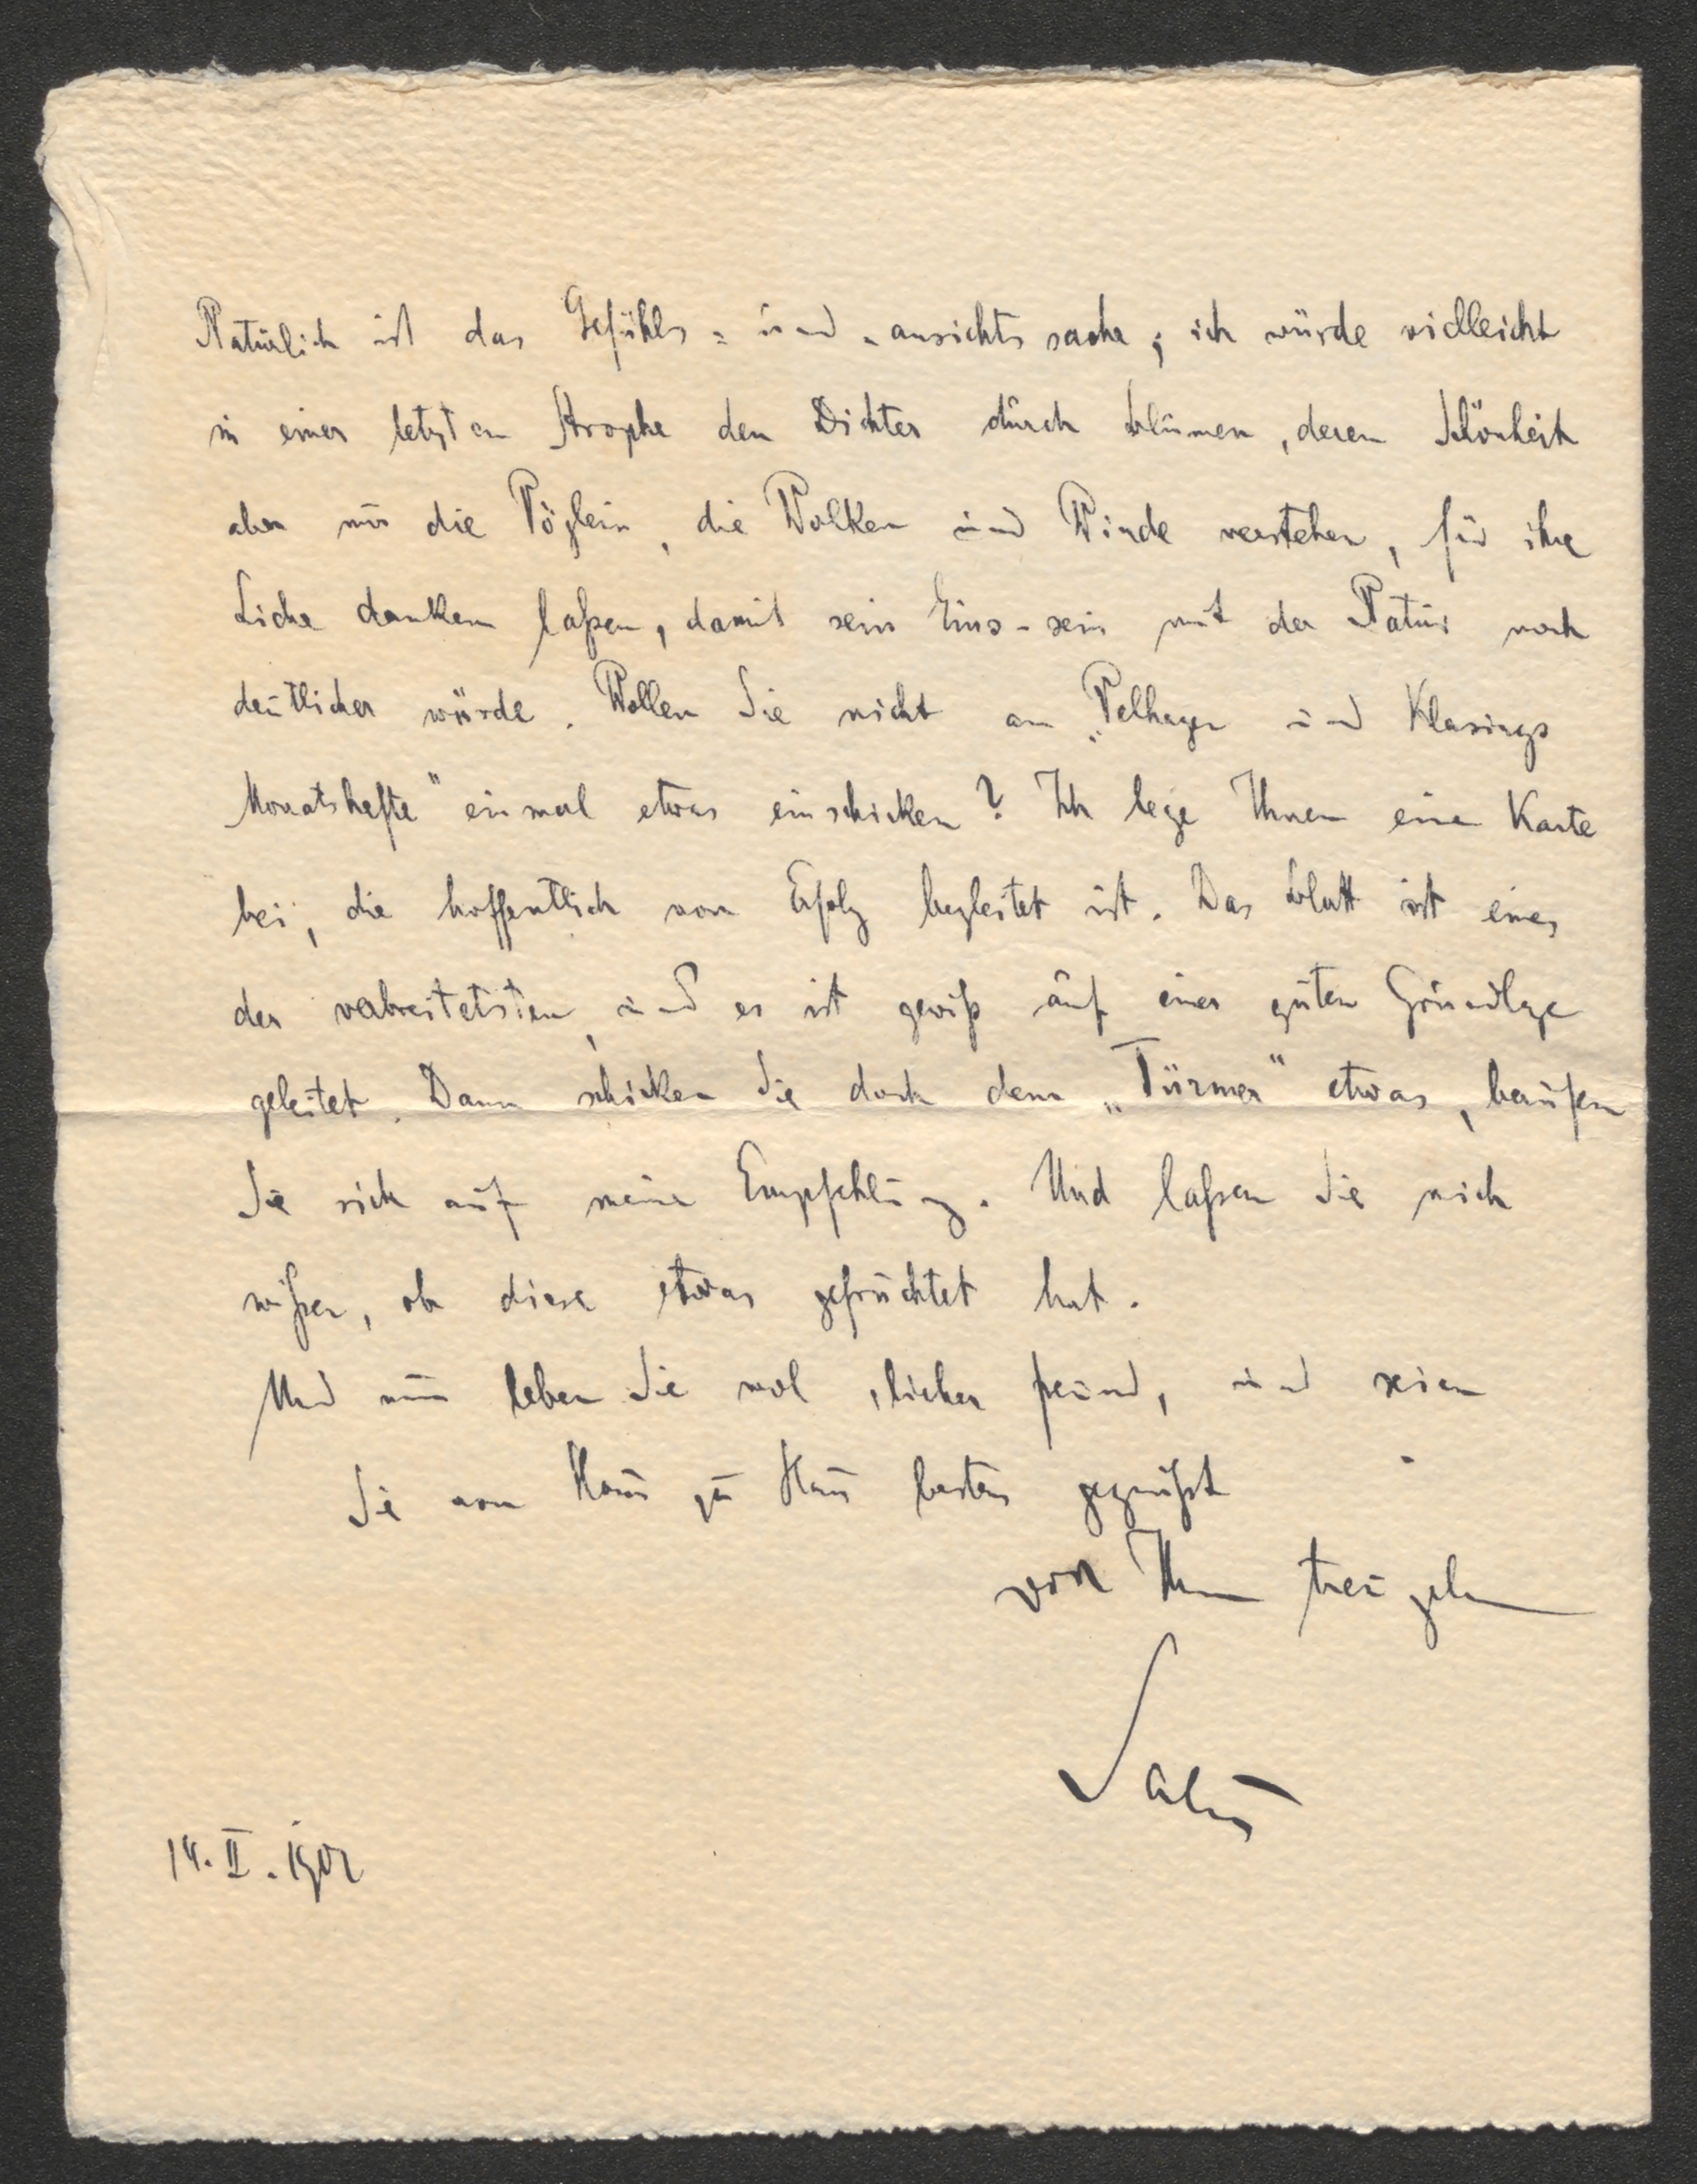 Natürlich ist das Gefühls- und -ansichtssache; ich würde vielleicht
in einer letzten Strophe den Dichter durch Blumen, deren Schönheit
aber nur die Vöglein, die Wolken und Winde verstehen, für ihre
Liebe danken laßen, damit sein Eins-sein mit der Natur noch
deutlicher würde. Wollen Sie nicht an „Velhagen und Klasings
Monatshefte" einmal etwas einschicken? Ich lege Ihnen eine Karte
bei, die hoffentlich von Erfolg begleitet ist. Das Blatt ist eines
der verbreitetsten, und es ist gewiß auf einer guten Grundlage
geleitet. Dann schicken Sie doch dem „Türmer" etwas, berufen
Sie sich auf meine Empfehlung. Und laßen Sie mich
wißen, ob diese etwas gefruchtet hat.
Und nun leben Sie wol, lieber Freund, und seien
Sie von Haus zu Haus bestens gegrüßt
von Ihrem treu geb
Salus
14. II. 1902